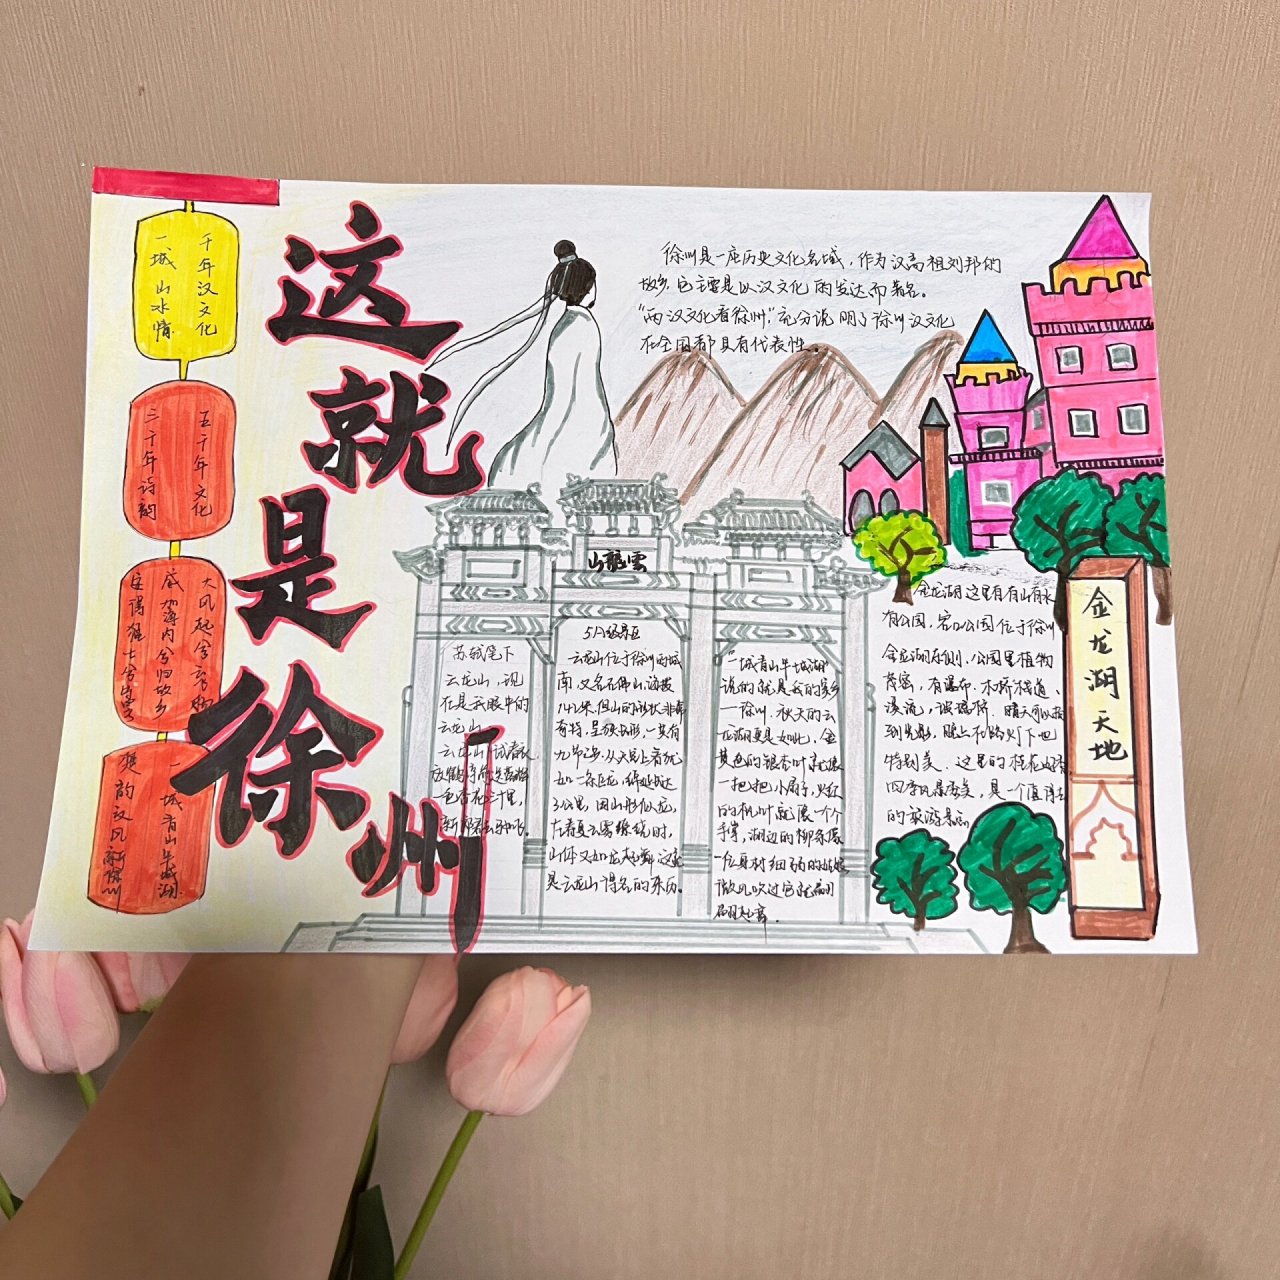 千年汉文化
一城山水情
五千年文化
三千年诗韵
大风起兮云飞扬
威加海内兮归故乡
安得猛士兮守
一城青山半城湖
楚韵汉风新徐州
这就是徐州
徐州是一座历史文化名城,作为汉高祖刘邦的
故乡,它主要是以汉文化的发达而著名。
“两汉文化看徐州”,充分说明了徐州汉文化
在全国都具有代表性。
山龍雲
苏轼笔下
云龙山,现
在是我眼中的
云龙山
5A级景区
云龙山位于徐州西城
南,又名石佛山,海拔
142米,但山的形状非常
奇特,呈
九节
如一条巨龙,绵延长达
3公里,因山形似龙,
在着夏云雾缭绕时,
山体又如龙起舞,这就
是云龙山得名的来历。
“一城青山半城湖”
说的就是我的家乡
一徐州.秋天的云
龙湖更是如此,金
黄色的银杏叶就像
一把把小扇子,火红
的枫叶就像一个个
手掌,湖边的柳条像
一位身材细弱的姑娘
微风吹过它就翩
翩起舞.
金龙湖这里有有山有水
有公园,宕口公园位于徐州
金龙湖东侧,公园里植物
茂密,有瀑布、木桥栈道、
溪流、玻璃桥.晴天可以看
到
特别美.这里的桃花
四季风景秀美,是一个值得去
的旅游景点
金龙湖天地